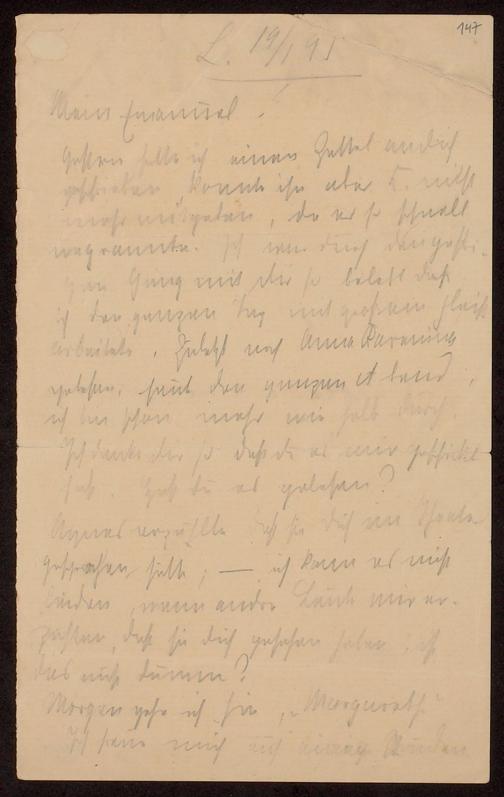 147
L. 19/1 91
Mein Emanuel.
Gestern hatte ich einen Zettel an dich
geschrieben, konnte ihn aber K. nicht
mehr mitgeben, da er so schnell
wegrannte. Ich war durch den gestri-
gen Gang mit dir so belebt daß
ich den ganzen Tag mit großem Fleiß
arbeitete. Zuletzt noch Anna Karenina
gelesen, heut den ganzen Abend,
ich bin schon mehr wie halb durch.
Ich danke dir so daß du es mir geschickt
hast. Hast du es gelesen?
Agnes erzählte daß sie dich im Theater
gesprochen hätte; — ich kann es nicht
leiden, wenn andre Leute mir er-
zählen, daß sie dich gesehen haben, ist
das nicht dumm?
Morgen gehe ich in „Margareth"
Ich sehne mich nach einigen Stunden